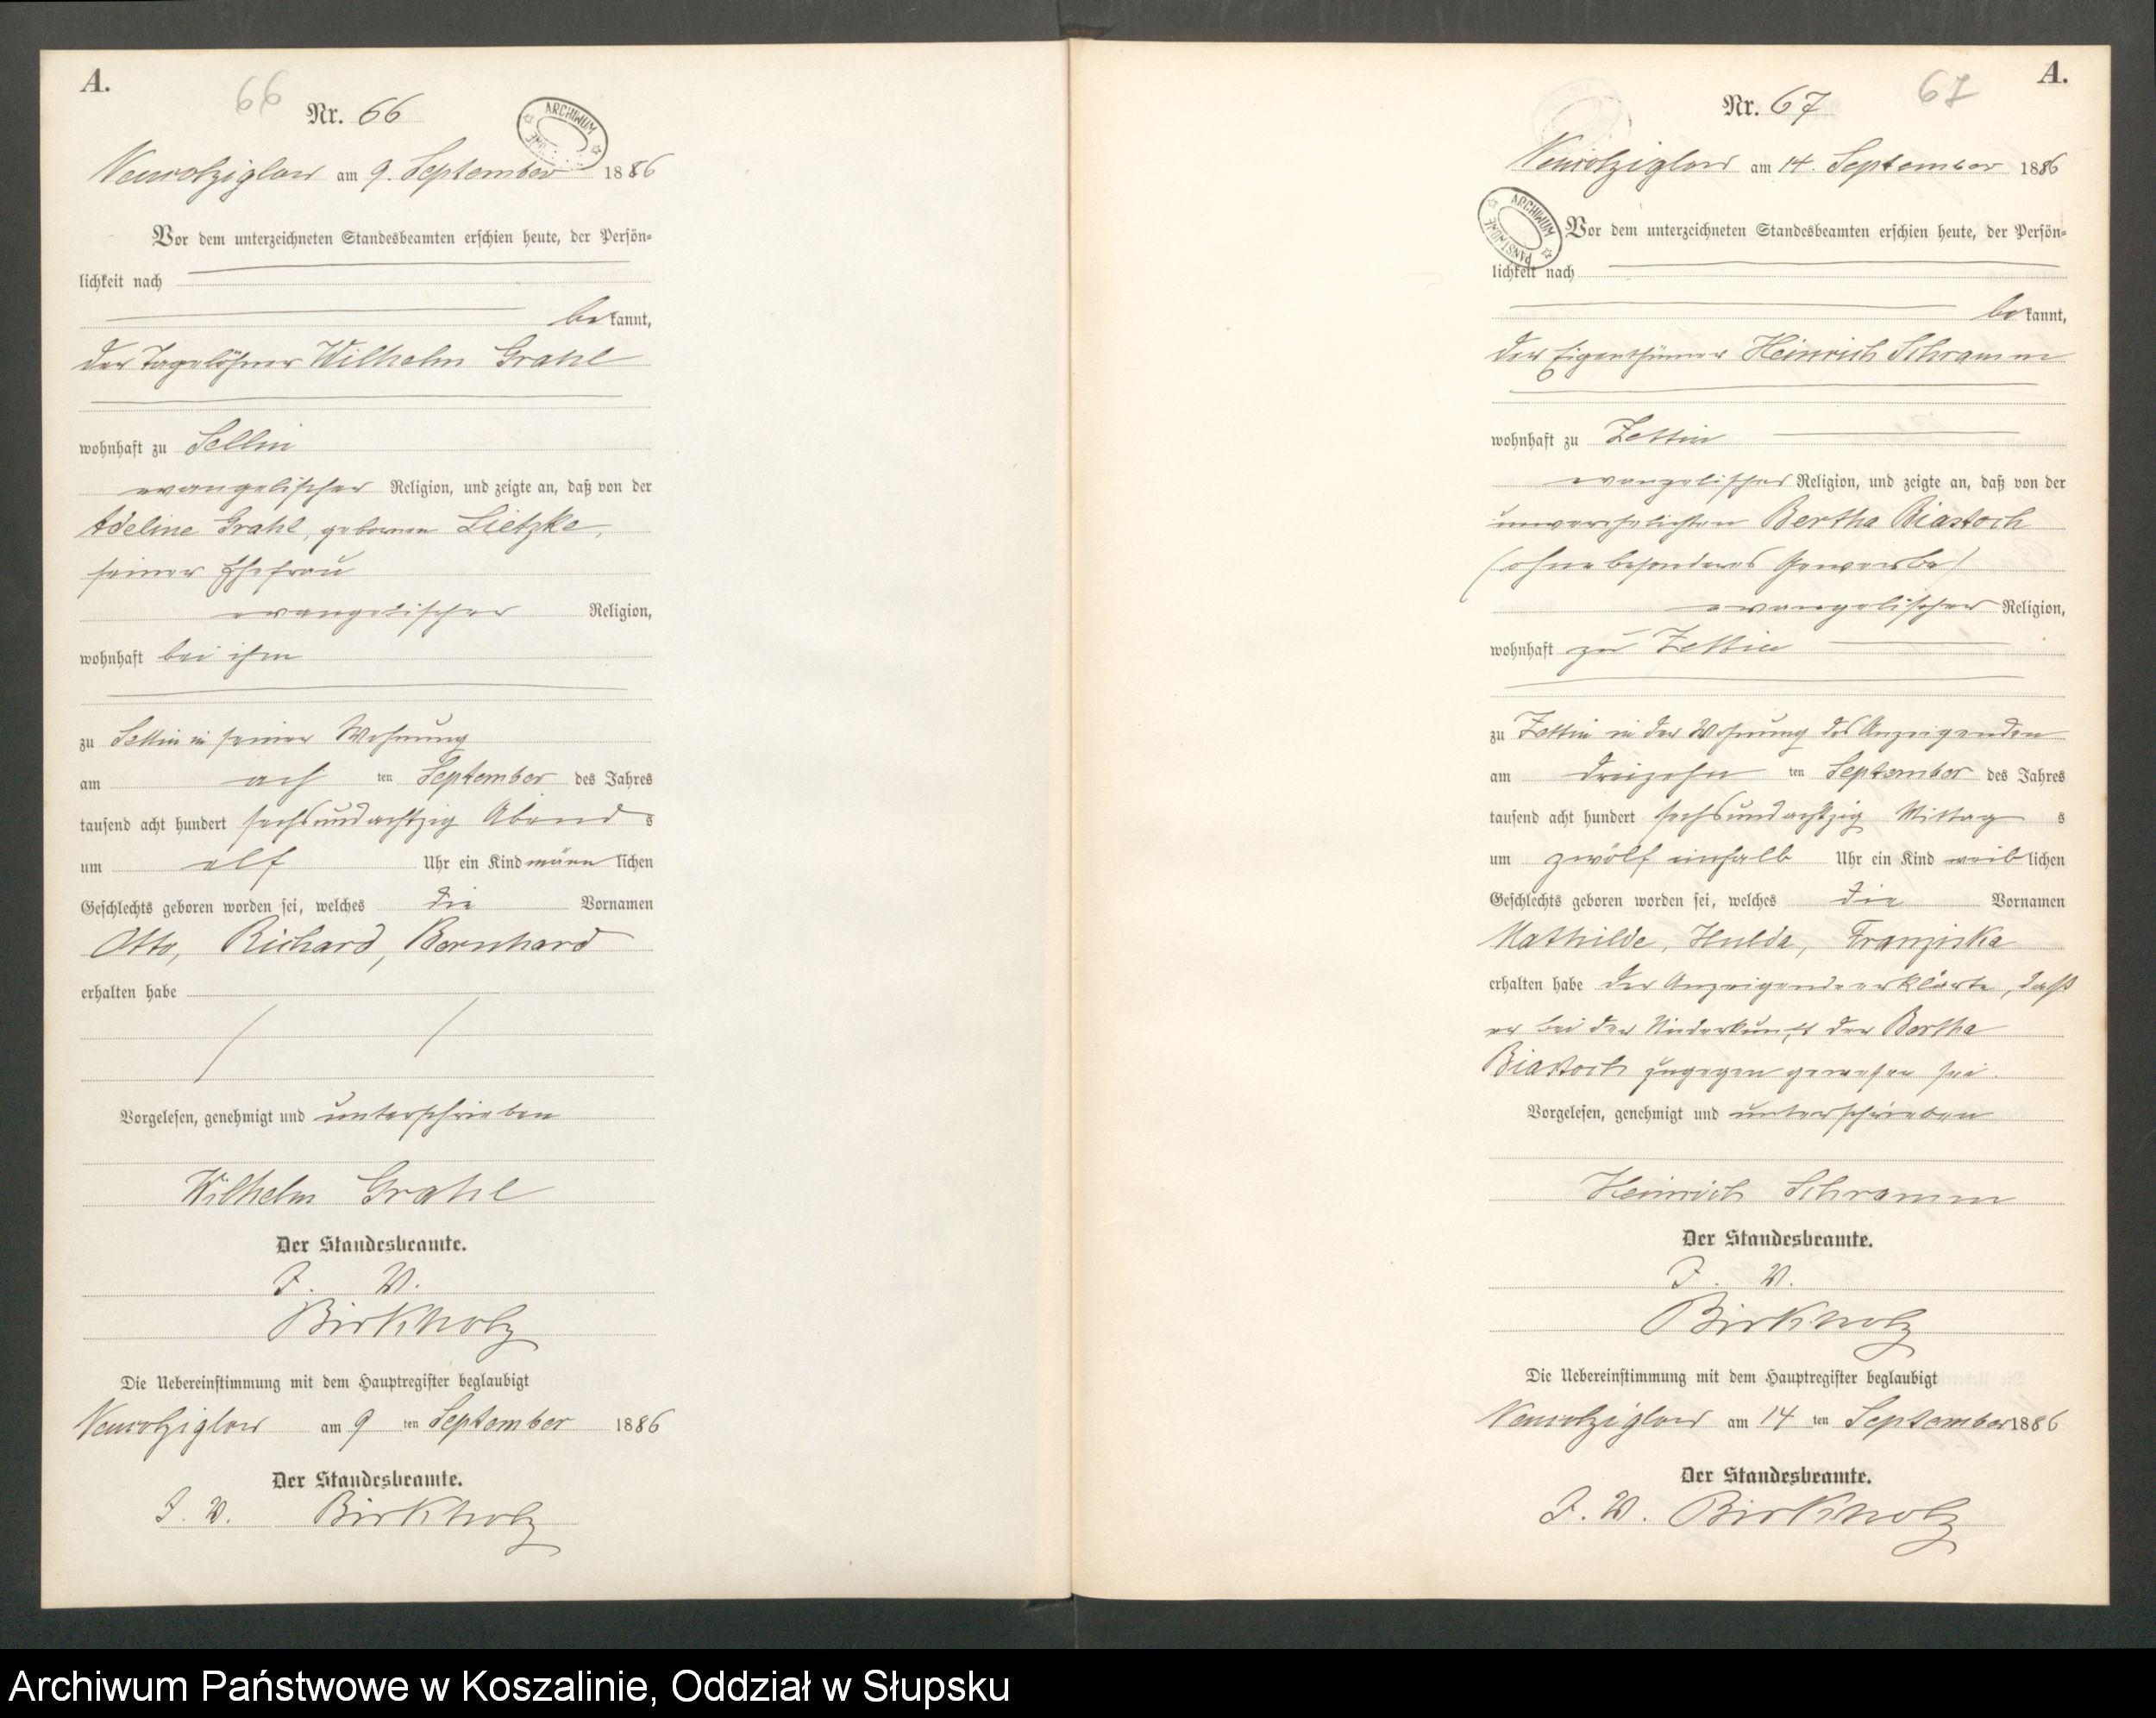 A.
66
Nr. 66
ARCHIWUM
am 9. September 1886
Vor dem unterzeichneten Standesbeamten erschien heute, der Persön-
lichkeit nach
bekannt,
der Tagelöhner Wilhelm Grahl
wohnhaft zu Sellin
evangelischer Religion, und zeigte an, daß von der
Adeline Grahl, geborenen Lietzke,
seiner Ehefrau
evangelischer Religion,
wohnhaft bei ihm
zu Sellin in seiner Wohnung
am ach ten September des Jahres
tausend acht hundert sechsundachtzig Abends
um elf Uhr ein Kind männlichen
Geschlechts geboren worden sei, welches die Vornamen
Otto, Richard, Bernhard
erhalten habe
Vorgelesen, genehmigt und unterschrieben
Wilhelm Grahl
Der Standesbeamte.
J. V.
Birkholz
Die Uebereinstimmung mit dem Hauptregister beglaubigt
am 9 ten September 1886
Der Standesbeamte.
J. V. Birkholz
A.
67
Nr. 67
am 14. September 1886
ARCHIWUM PAŃSTWOWE
Vor dem unterzeichneten Standesbeamten erschien heute, der Persön-
lichkeit nach
bekannt,
der Eigenthümer Heinrich Schramm
wohnhaft zu Zettin
evangelischer Religion, und zeigte an, daß von der
unverehelichten Bertha Biastoch
(ohne besonderes Gewerbe)
evangelischer Religion,
wohnhaft zu Zettin
zu Zettin in der Wohnung des Anzeigenden
am dreizehn ten September des Jahres
tausend acht hundert sechsundachtzig Mittags
um zwölf einhalb Uhr ein Kind weiblichen
Geschlechts geboren worden sei, welches die Vornamen
Mathilde, Hulda, Franziska
erhalten habe der Anzeigende erklärte, daß
er bei der Niederkunft der Bertha
Biastoch zugegen gewesen sei.
Vorgelesen, genehmigt und unterschrieben
Heinrich Schramm
Der Standesbeamte.
J. V.
Birkholz
Die Uebereinstimmung mit dem Hauptregister beglaubigt
am 14 ten September 1886
Der Standesbeamte.
J. V. Birkholz
Archiwum Państwowe w Koszalinie, Oddział w Słupsku